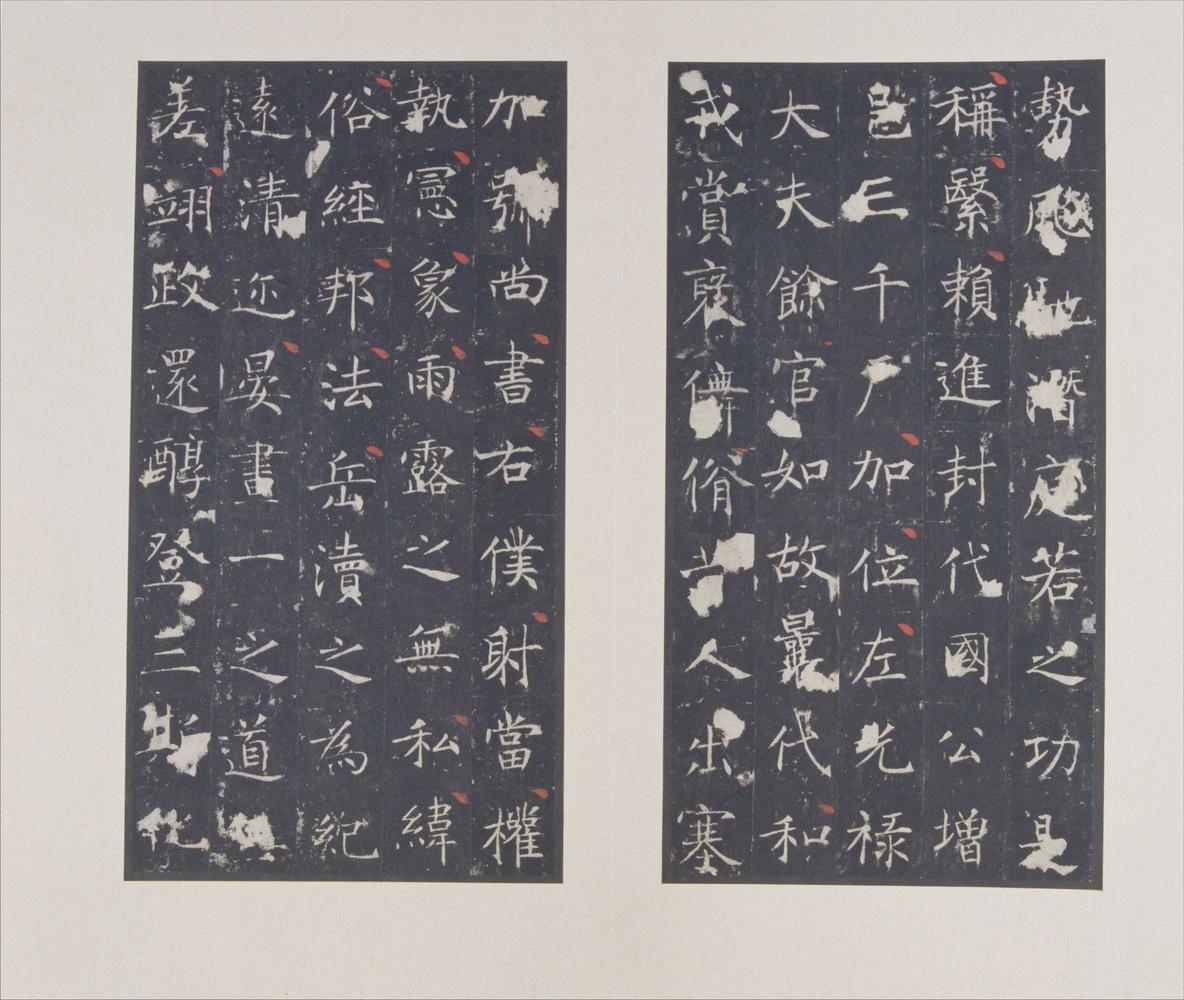 勢馳潛庭若之功是
稱繄賴進封代國公增
邑三千戶加位左光禄
大夫餘官如故曩代和
戎賞裒儛佾昔人出塞
加號尚書右僕射當權
執憲象雨露之無私緯
俗經邦法岳瀆之為紀
遠清迩晏畫一之道
差翊政還醇登三斯化